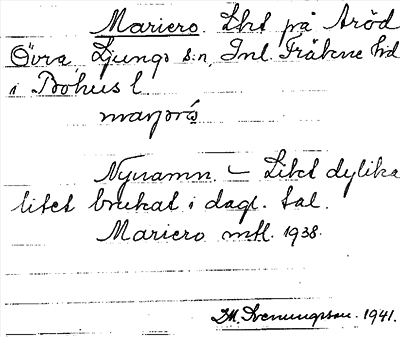 Mariero. Lht på Aröd
Övra, Ljungs s:n, Inl. Fräkne hd
i Bohus l.
marjorò
Nynamn. – Likt dylika
litet brukat i dagl. tal.
Mariero mtl. 1938.
D.M. Svenungsson. 1941.